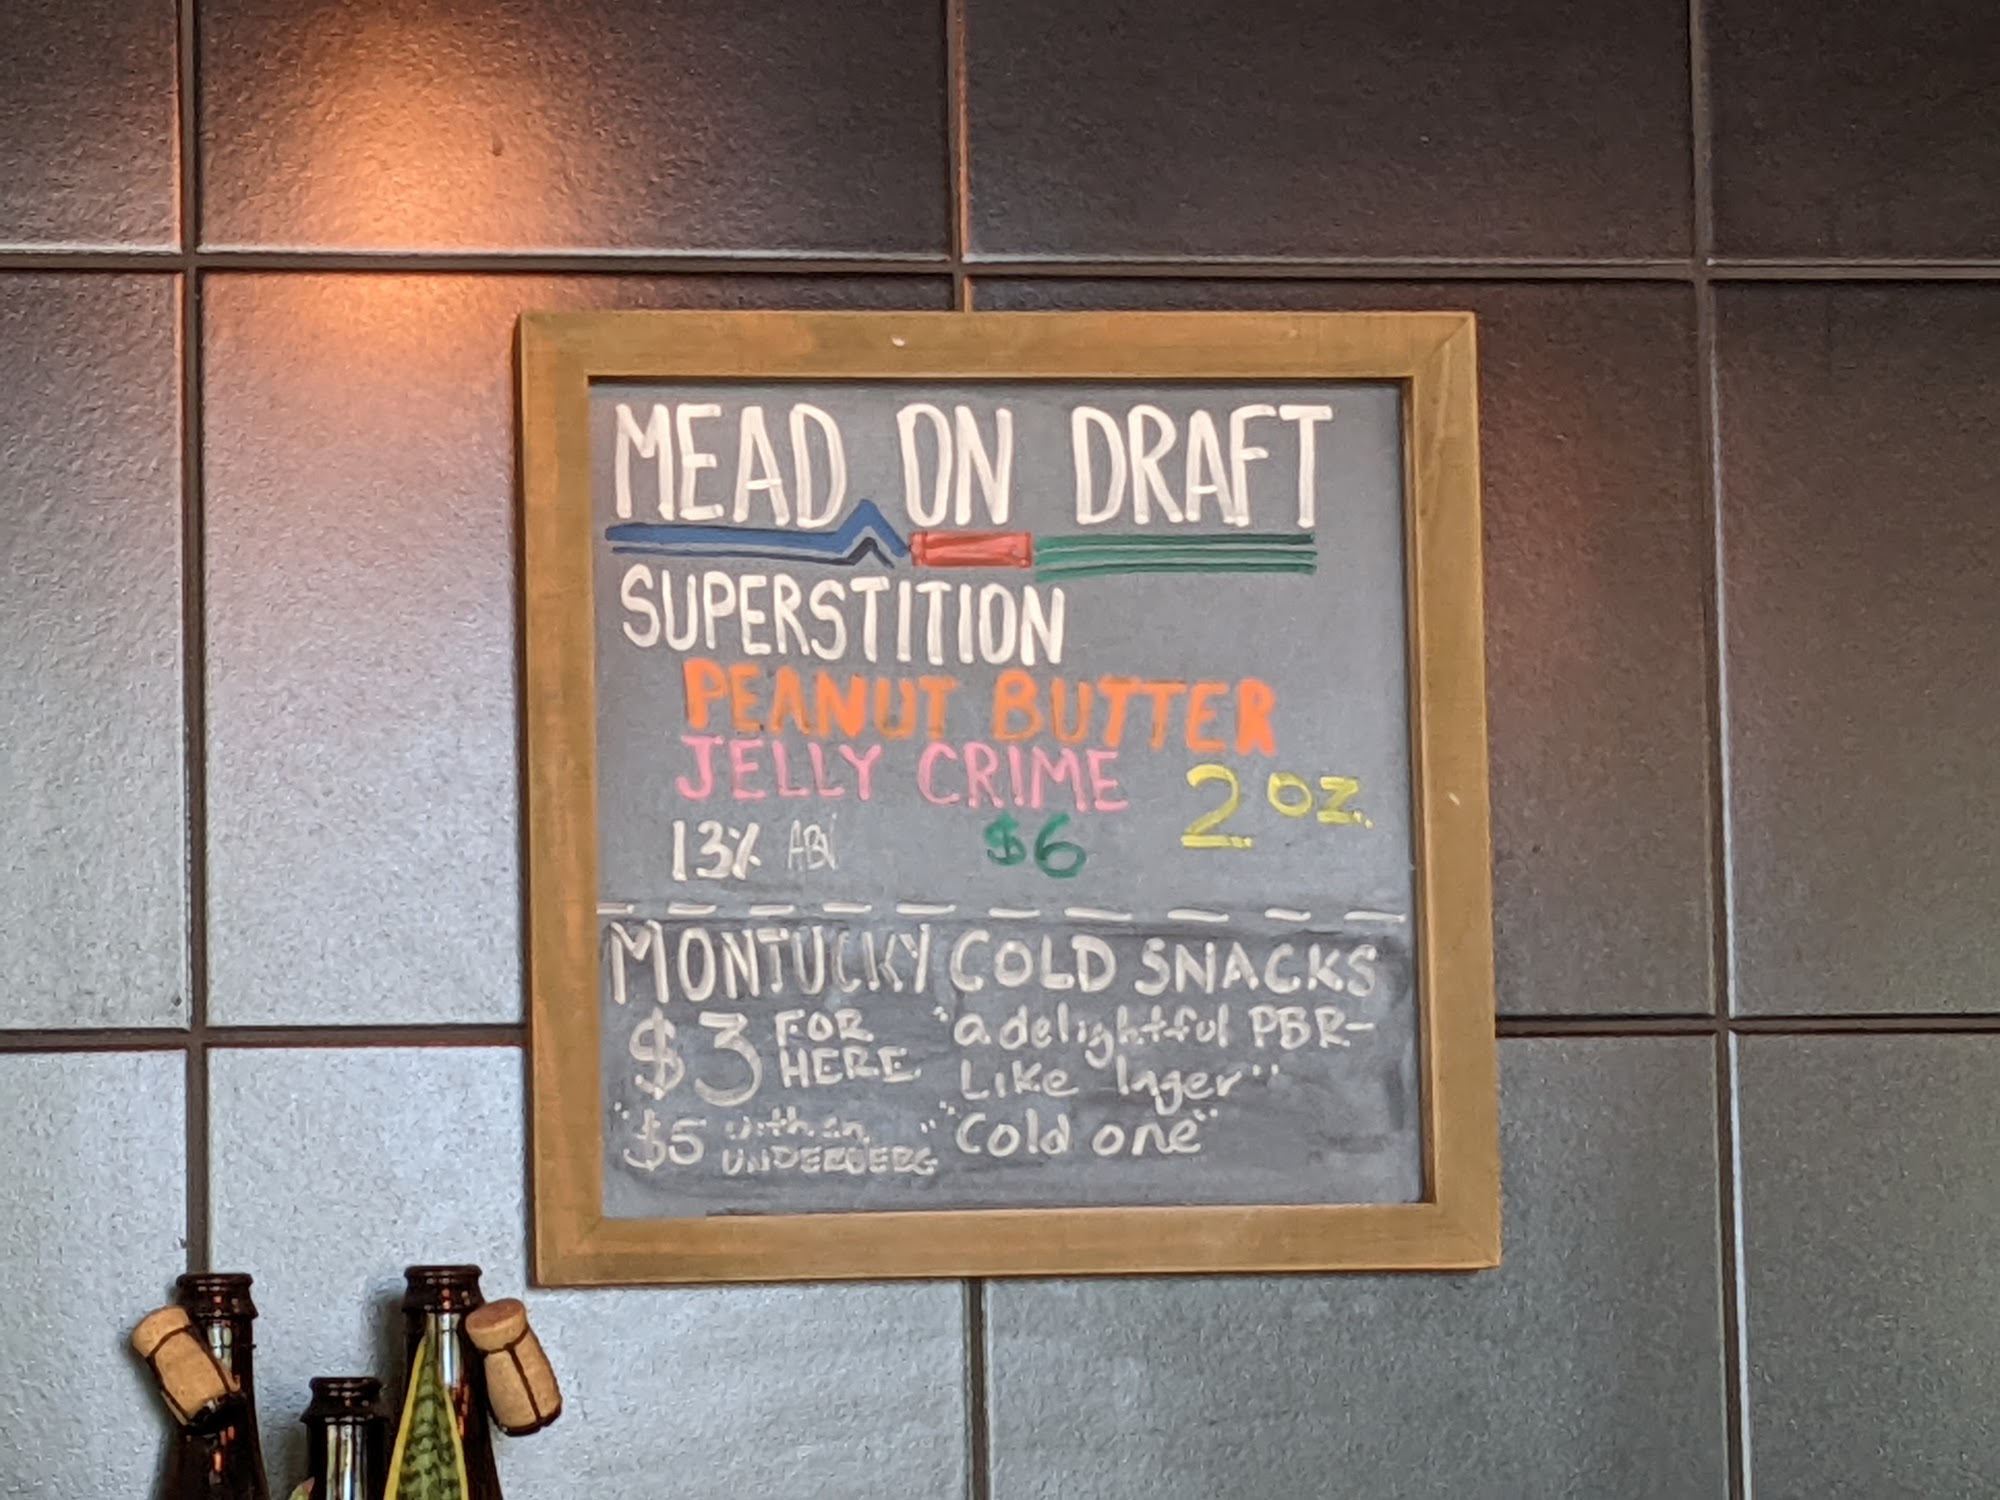 MEAD ON DRAFT
SUPERSTITION
PEANUT BUTTER
JELLY CRIME
2 OZ.
13% ABV $6
MONTUCKY COLD SNACKS
$3 FOR HERE
"a delightful PBR-
Like lager"
"$5 with an UNDERBERG"
"Cold one"